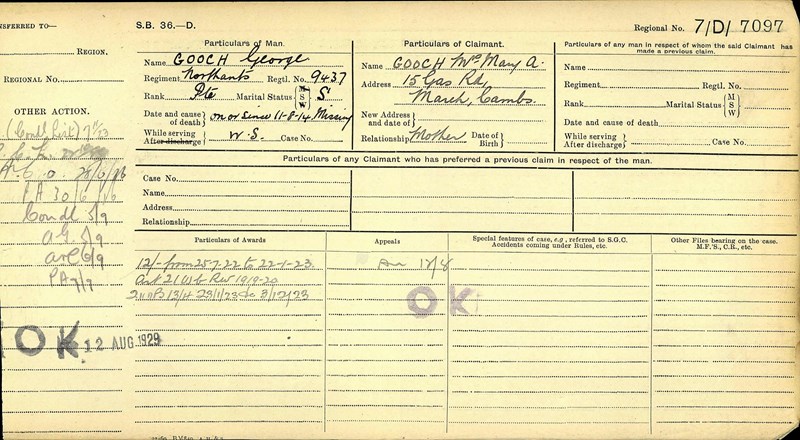 NSFERRED TO—
REGION,
REGIONAL NO.
OTHER ACTION.
28/6/26
PA 30/6/26
Condl 5/9
AG 5/9
6/9
PA 7/7
OK 12 AUG 1929
S.B. 36.—D.
Regional No. 7/D/7097
Particulars of Man.
Name GOOCH George
Regiment Northants Regtl. No. 9437
Rank Pte Marital Status M S W S
Date and cause of death on or since 11-8-14 Missing
While serving
After discharge W.S. Case No.
Particulars of Claimant.
Name GOOCH Mrs Mary A.
Address 15 Gas Rd,
March, Cambs.
New Address and date of
Relationship Mother Date of Birth
Particulars of any man in respect of whom the said Claimant has made a previous claim.
Name
Regiment Regtl. No.
Rank Marital Status M S W
Date and cause of death
While serving
After discharge Case No.
Particulars of any Claimant who has preferred a previous claim in respect of the man.
Case No.
Name
Address
Relationship
Particulars of Awards
12/- from 25-7-22 to 22-1-23.
Art 21 Rev 19/9-20
13/4 23/1/23 to 3/12/23
Appeals
12/8
OK
Special features of case, e.g., referred to S.G.C. Accidents coming under Rules, etc.
Other Files bearing on the case. M.F.'s, C.R., etc.